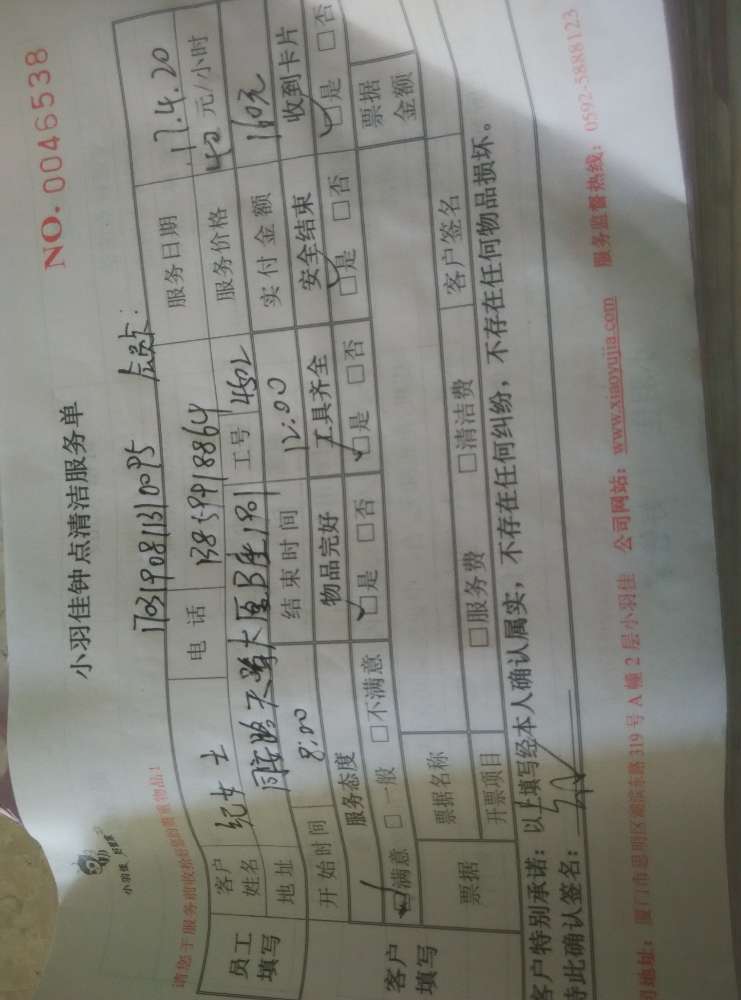 小羽佳
NO.0046538
小羽佳钟点清洁服务单
请您于服务前收拾好您的贵重物品!
1703190811310095 会员卡:
员工填写
客户姓名 纪女士 电话 服务日期 17.4.20
地址 工号 服务价格 40 元/小时
开始时间 8:00 结束时间 12:00 实付金额 160元
客户填写
服务态度 物品完好 工具齐全 安全结束 收到卡片
☑满意 □一般 □不满意 ☑是 □否 ☑是 □否 ☑是 □否 ☑是 □否
票据 票据名称 票据金额
开票项目 □服务费 □清洁费 客户签名
客户特别承诺:以上填写经本人确认属实,不存在任何纠纷,不存在任何物品损坏。
特此确认签名:
司地址:厦门市思明区湖滨东路319号A幢2层小羽佳 公司网站:www.xiaoyujia.com 服务监督热线:0592-5888123